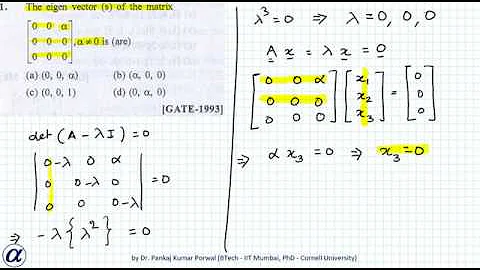 1. The eigen vector (s) of the matrix
[0 0 α
0 0 0
0 0 0], α ≠ 0 is (are)
(a) (0, 0, α) (b) (α, 0, 0)
(c) (0, 0, 1) (d) (0, α, 0)
[GATE-1993]
det (A - λI) = 0
|0-λ 0 α
0 0-λ 0
0 0 0-λ| = 0
⇒ -λ{λ²} = 0
λ³ = 0 ⇒ λ = 0, 0, 0
A x = λ x = 0
[0 0 α] [x₁] [0]
[0 0 0] [x₂] = [0]
[0 0 0] [x₃] [0]
⇒ α x₃ = 0 ⇒ x₃ = 0
α
by Dr. Pankaj Kumar Porwal (BTech - IIT Mumbai, PhD - Cornell University)